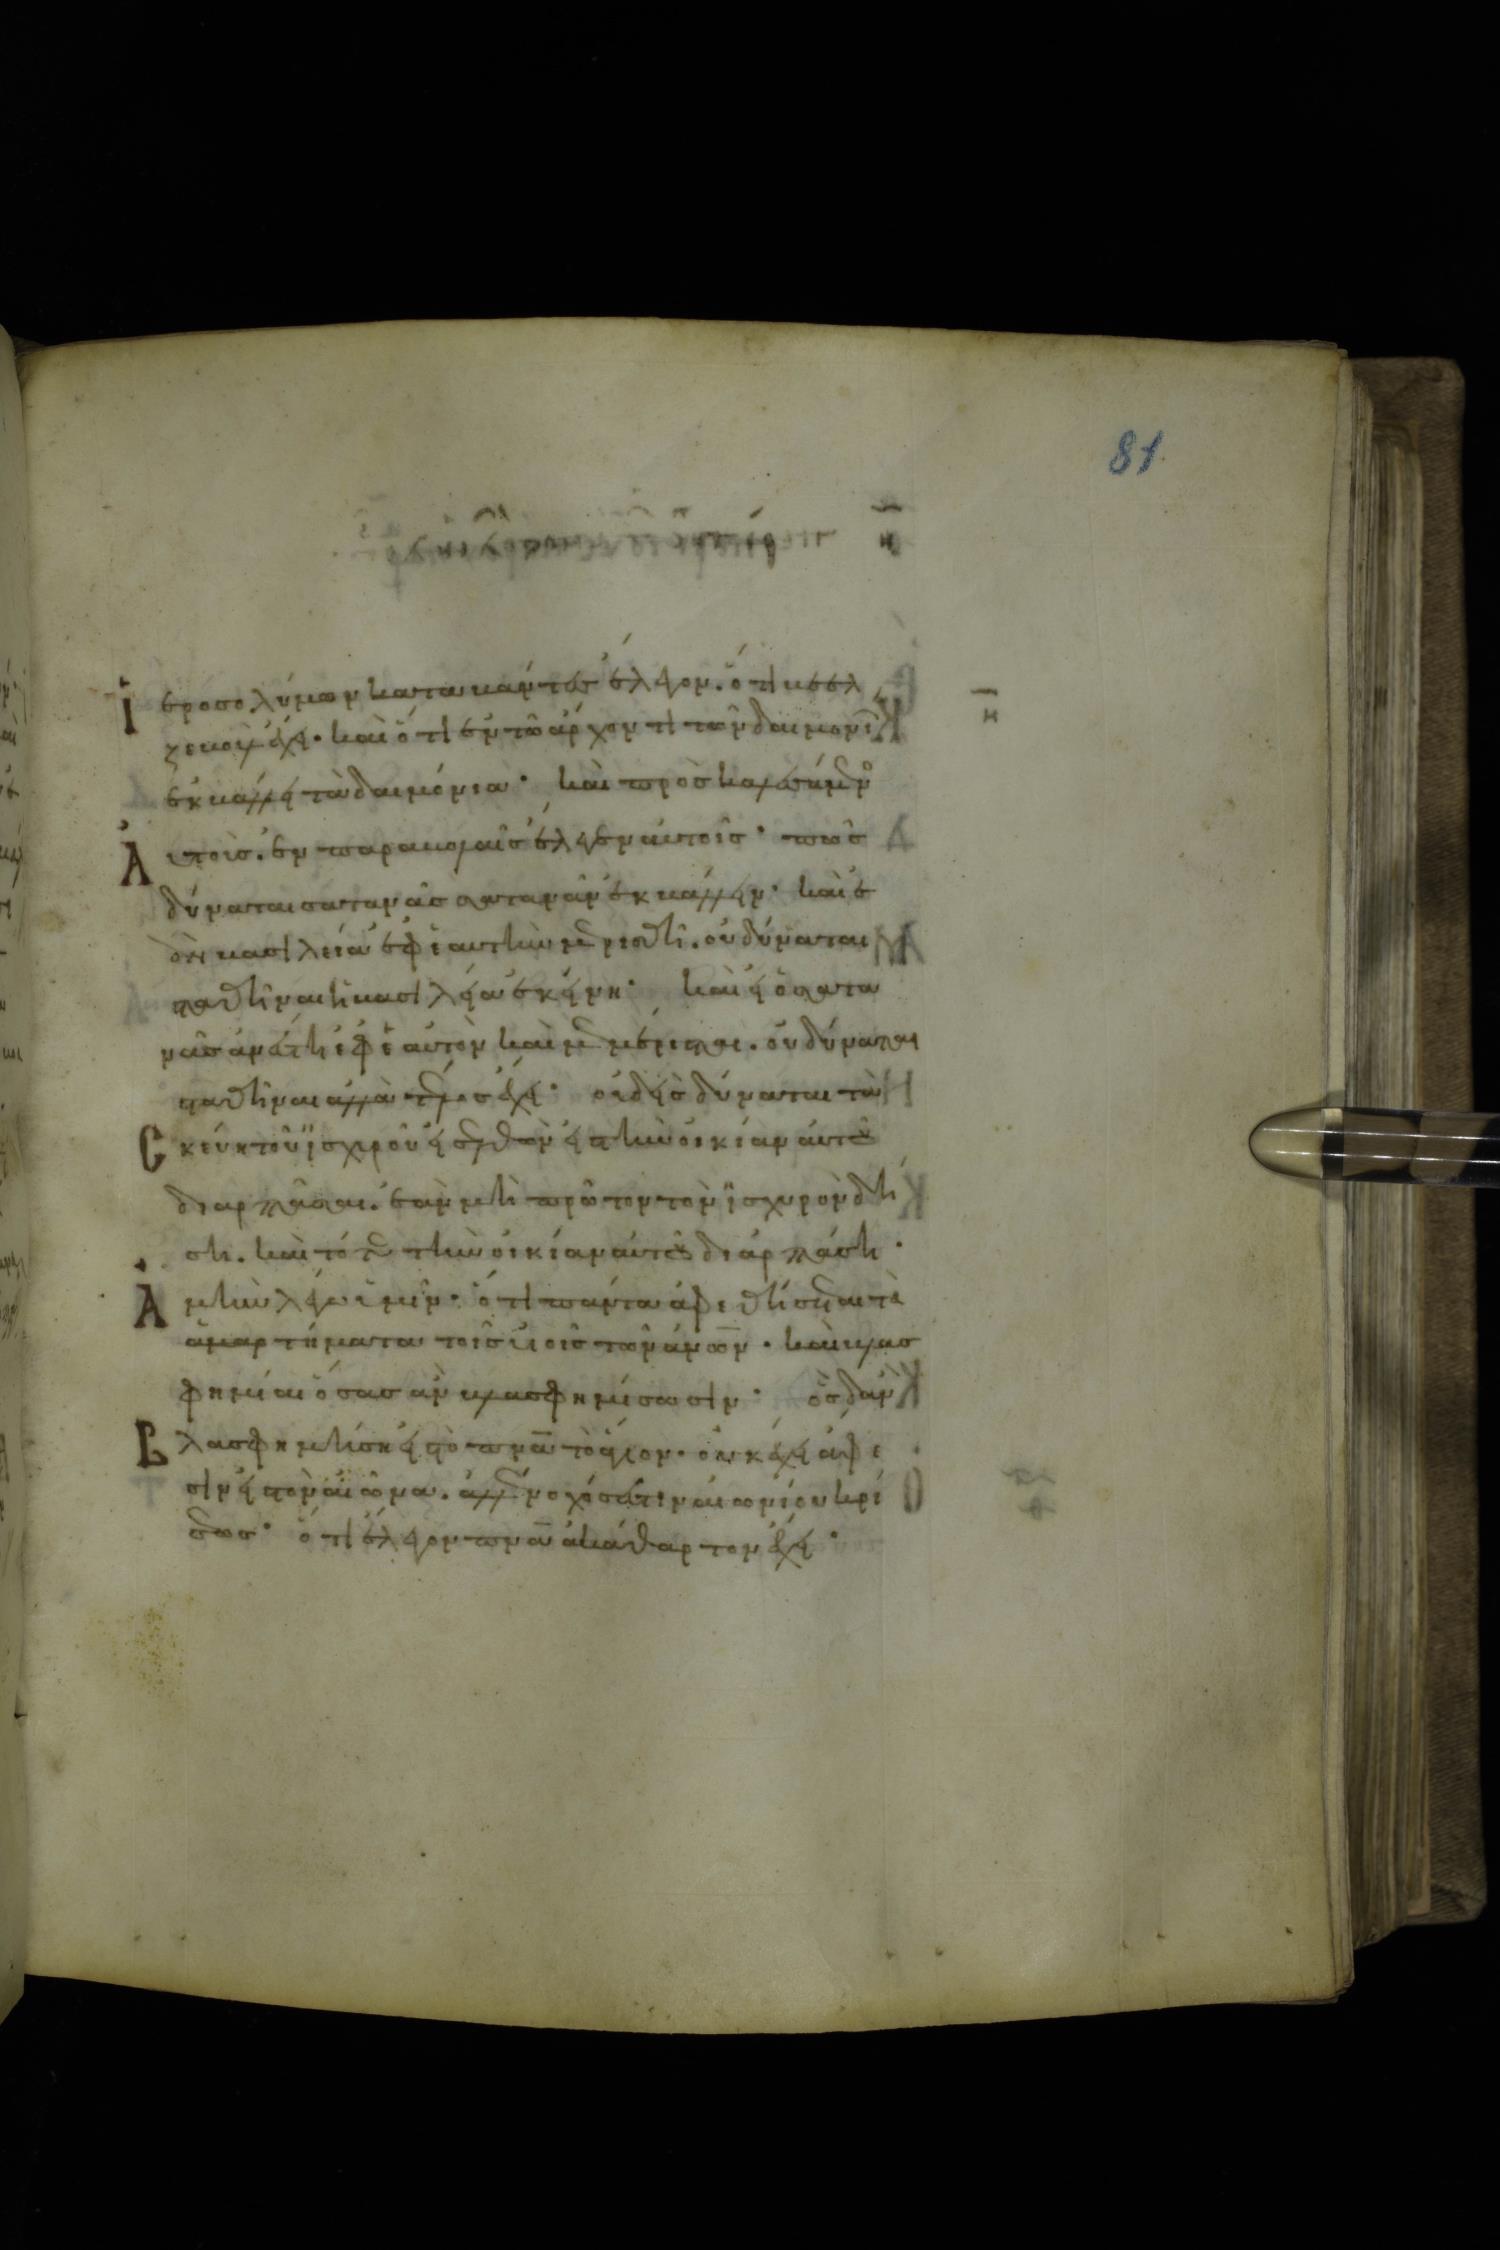 81
η
Ἱεροσολύμων καταβάντες ἔλεγον. ὅτι βεελ
ζεβοὺλ ἔχει. καὶ ὅτι ἐν τῶ ἄρχοντι τῶν δαιμονί
ἐκβάλλει τὰ δαιμόνια. καὶ προσκαλεσάμενος
Αὐτοῖς. ἐν παραβολαῖς ἔλεγεν αὐτοῖς. πῶς
δύναται σατανᾶς σατανᾶν ἐκβάλλειν. καὶ ἐ
ὰν βασιλεία ἐφ' ἑαυτὴν μερισθῆ. οὐ δύναται
σταθῆναι ἡ βασιλεία ἐκείνη. καὶ εἰ ὁ σατα
νᾶς ἀνέστη ἐφ' ἑαυτὸν καὶ μεμέρισται. οὐ δύναται
σταθῆναι ἀλλὰ τέλος ἔχει. οὐδεὶς δύναται τὰ
Σκεύη τοῦ ἰσχυροῦ εἰσελθὼν εἰς τὴν οἰκίαν αὐτοῦ
διαρπάσαι. ἐὰν μὴ πρῶτον τὸν ἰσχυρὸν δή
ση. καὶ τότε τὴν οἰκίαν αὐτοῦ διαρπάση.
Ἀμὴν λέγω ὑμῖν. ὅτι πάντα ἀφεθήσεται τὰ
ἁμαρτήματα τοῖς υἱοῖς τῶν ἀνων. καὶ βλασ
φημίαι ὅσας ἂν βλασφημήσωσιν. ὃς δ' ἂν
Βλασφημήση εἰς τὸ πνα τὸ ἅγιον. οὐκ ἔχει ἄφε
σιν εἰς τὸν αἰῶνα. ἀλλ' ἔνοχός ἐστιν αἰωνίου κρί
σεως. ὅτι ἔλεγον πνα ἀκάθαρτον ἔχει.